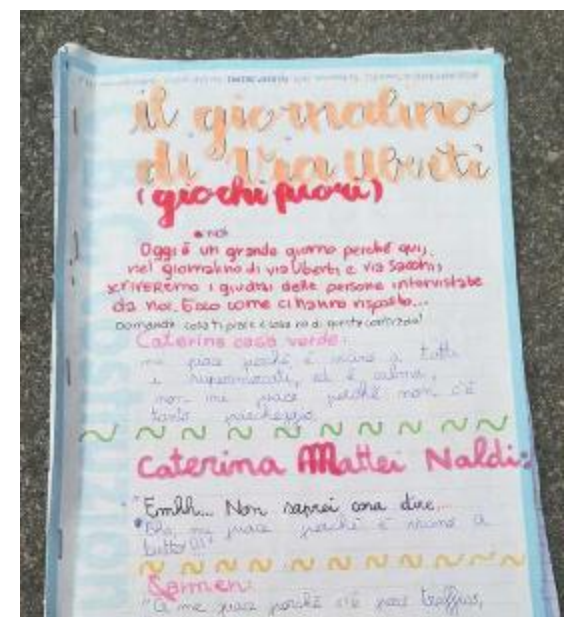 il giornalino
di Via Uberti
(giochi fuori)
noi
Oggi è un grande giorno perché qui,
nel giornalino di via Uberti e via Sacchi,
scriveremo i giudizi delle persone intervistate
da noi. Ecco come ci hanno risposto...
Domanda: cosa ti piace e cosa no di questa contrada?
Caterina casa verde:
me piace perché è vicino a tutti
i supermercati, ed è calma,
non mi piace perché non c'è
tanto parcheggio.
Caterina Mattei Naldi:
"Emhh... Non saprei cosa dire...
me piace perché è vicino a
tutto!!!"
Carmen:
"A me piace perché c'è poco traffico,